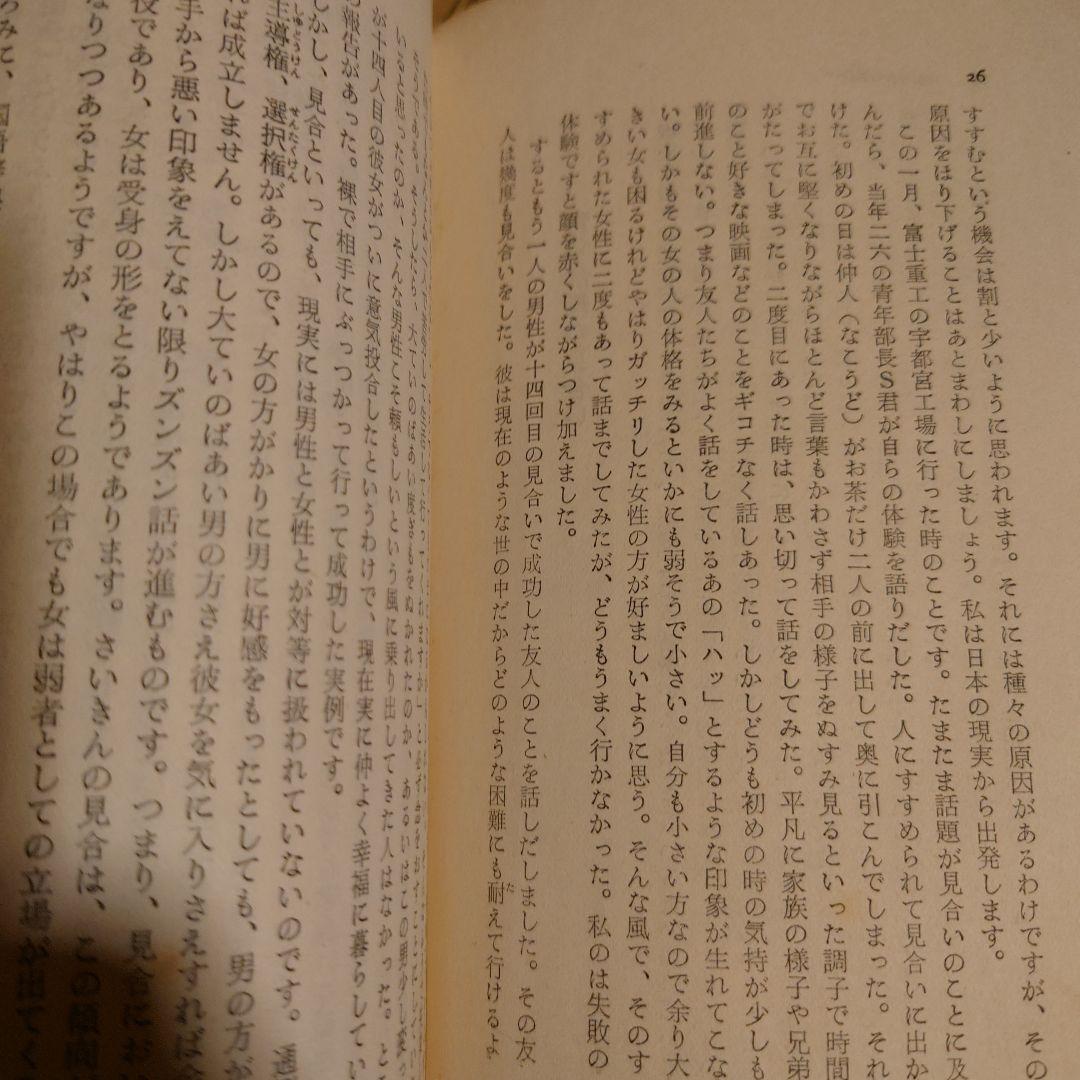 26
すすむという機会は割と少いように思われます。それには種々の原因があるわけですが、その
原因をほり下げることはあとまわしにしましょう。私は日本の現実から出発します。
この一月、富士重工の宇都宮工場に行った時のことです。たまたま話題が見合いのことに及
んだら、当年二六の青年部長S君が自らの体験を語りだした。人にすすめられて見合いに出か
けた。初めの日は仲人（なこうど）がお茶だけ二人の前に出して奥に引こんでしまった。それ
でお互に堅くなりながらほとんど言葉もかわさず相手の様子をぬすみ見るといった調子で時間
がたってしまった。二度目にあった時は、思い切って話をしてみた。平凡に家族の様子や兄弟
のこと好きな映画などのことをギコチなく話しあった。しかしどうも初めの時の気持が少しも
前進しない。つまり友人たちがよく話をしているあの「ハッ」とするような印象が生れてこな
い。しかもその女の人の体格をみるといかにも弱そうで小さい。自分も小さい方なので余り大
きい女も困るけれどやはりガッチリした女性の方が好ましいように思う。そんな風で、そのす
すめられた女性に二度もあって話までしてみたが、どうもうまく行かなかった。私のは失敗の
体験ですと顔を赤くしながらつけ加えました。
するともう一人の男性が十四回目の見合いで成功した友人のことを話しだしました。その友
人は幾度も見合いをした。彼は現在のような世の中だからどのような困難にも耐えて行けるよ
いると思ったのか、そんな男性こそ頼もしいという風に乗り出してきた人はなかった。と
が十四人目の彼女がついに意気投合したというわけで、現在実に仲よく幸福に暮らしてい
報告があった。裸で相手にぶっつかって行って成功した実例です。
しかし、見合といっても、現実には男性と女性とが対等に扱われていないのです。
主導権、選択権があるので、女の方がかりに男に好感をもったとしても、男の方が
ば成立しません。しかし大ていのばあい男の方さえ彼女を気に入りさえすれば
手から悪い印象をえてない限りズンズン話が進むものです。つまり、見合にお
役であり、女は受身の形をとるようであります。さいきんの見合は、この傾向
なりつつあるようですが、やはりこの場合でも女は弱者としての立場が出てく